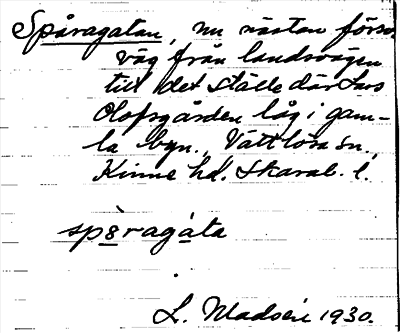 Spåragatan, nu nästan försv.
väg från landsvägen
till det ställe där Lars
Olofsgården låg i gam-
la byn., Vättlösa sn.,
Kinne hd. Skarab. l.
spåragata
L. Madsén 1930.